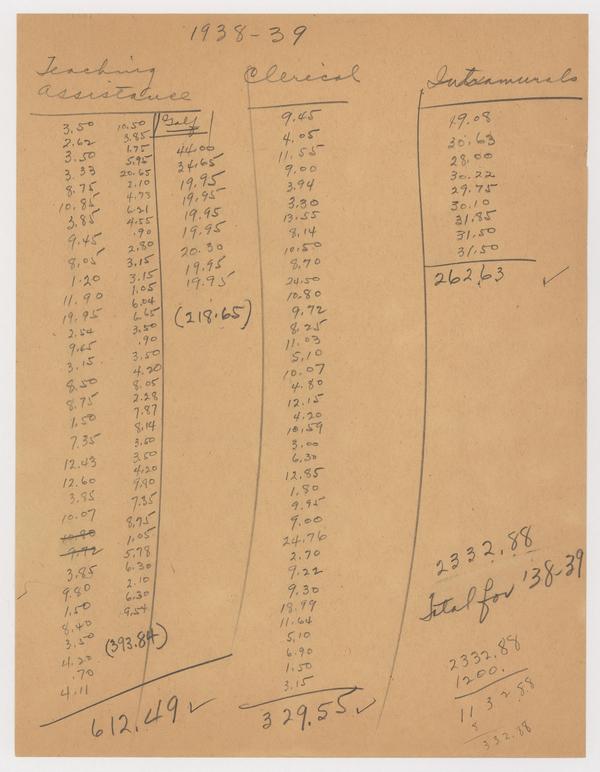 1938-39
Teaching
Assistance
3.50
2.62
3.50
3.33
8.75
10.85
3.85
9.45
8.05
1.20
11.90
19.95
2.54
9.45
3.15
8.50
8.75
1.50
7.35
12.43
12.60
3.85
10.07
10.80
9.72
3.85
9.80
1.50
8.40
3.50
4.20
.70
4.11
10.50
3.85
1.75
5.95
20.65
2.10
4.73
6.21
4.55
.90
2.80
3.15
3.15
1.05
6.04
6.65
3.50
.90
3.50
4.20
8.05
2.28
7.87
8.14
3.50
3.50
4.20
9.80
7.35
8.75
1.05
5.78
6.30
2.10
6.30
9.54
(393.84)
Golf
44.00
34.65
19.95
19.95
19.95
19.95
20.30
19.95
19.95
(218.65)
612.49 ✓
Clerical
9.45
4.05
11.55
9.00
3.94
3.30
13.55
8.14
10.50
8.70
24.50
10.80
9.72
8.25
11.03
5.10
10.07
4.80
12.15
4.20
10.59
3.00
6.30
12.85
1.80
9.95
9.00
24.76
2.70
9.22
9.30
18.99
11.64
5.10
6.90
1.50
3.15
329.55 ✓
Intramurals
19.08
30.63
28.00
30.22
29.75
30.10
31.85
31.50
31.50
262.63 ✓
2332.88
Total for '38-39
2332.88
1200.
1132.88
332.88